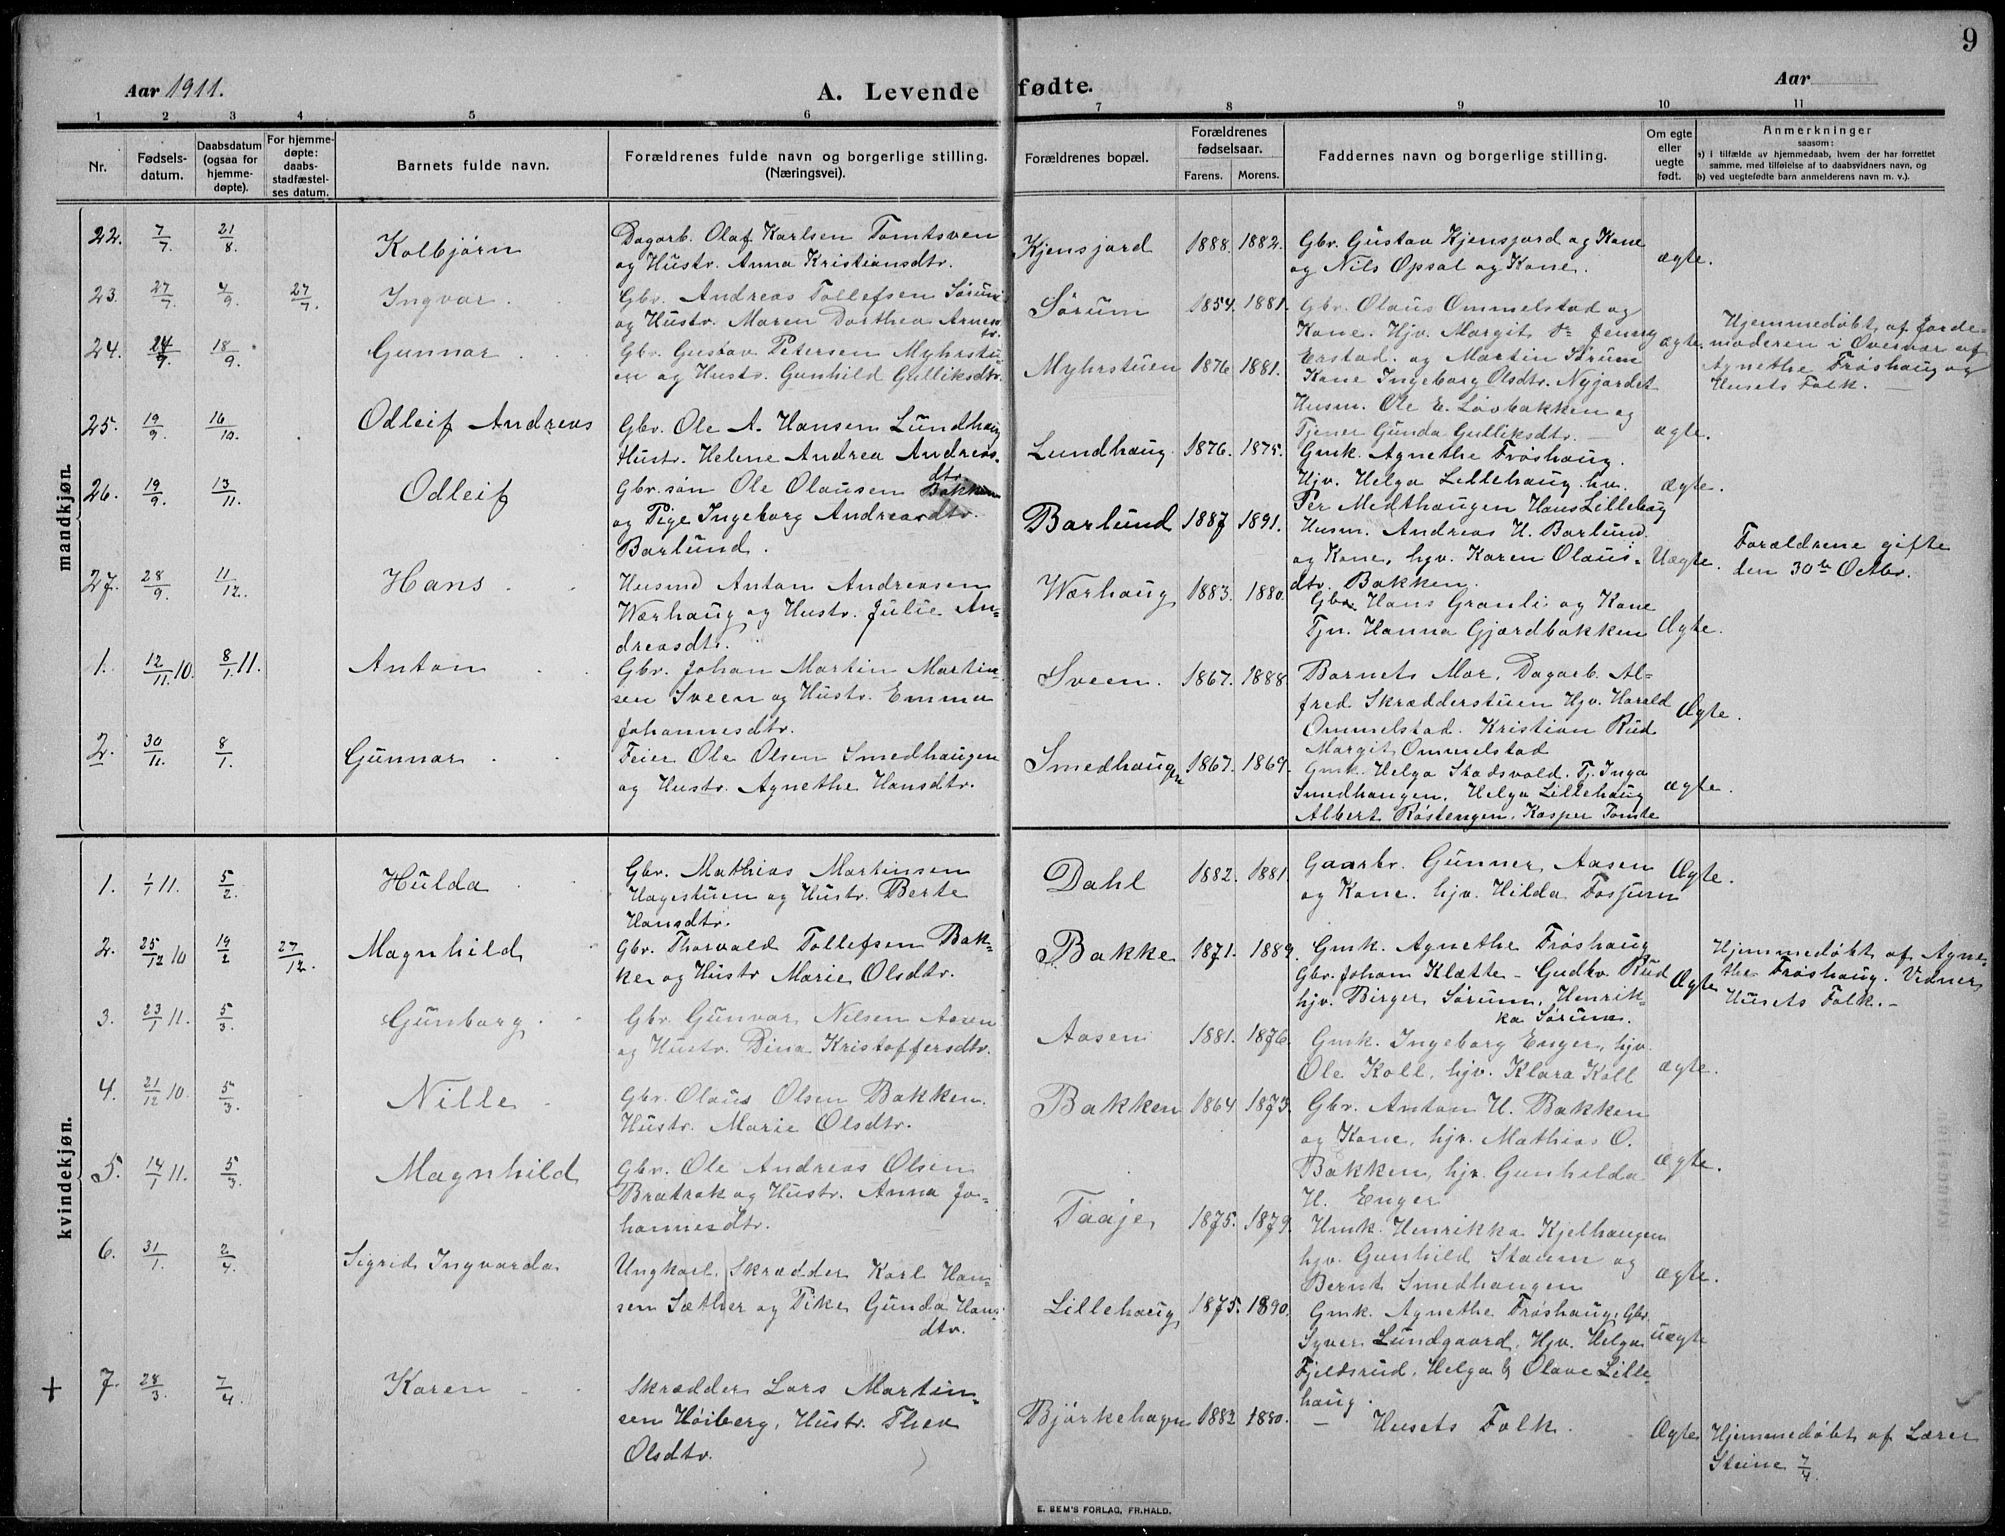 9
Aar 1911.
A. Levende fødte.
Aar
1 2 3 4 5 6 7 8 9 10 11
Nr.
Fødsels-
datum.
Daabsdatum
(ogsaa for
hjemme-
døpte).
For hjemme-
døpte:
daabs-
stadfæstel-
ses datum.
Barnets fulde navn.
Forældrenes fulde navn og borgerlige stilling.
(Næringsvei).
Forældrenes bopæl.
Forældrenes
fødselsaar.
Farens. Morens.
Faddernes navn og borgerlige stilling.
Om egte
eller
uegte
født.
Anmerkninger
saasom:
a) i tilfælde av hjemmedaab, hvem der har forrettet
samme, med tilføielse af to daabsvidners navn, og
b) ved uegtefødte barn anmelderens navn m. v.).
mandkjøn.
22. 7/7 21/8 Kolbjørn
Dagarb. Olaf Karlsen Tomtsven
og Hustr. Anna Kristiansdtr.
Kjensjord 1888. 1882.
Gbr. Gustav Kjensjord og Kone
og Nils Opsal og Kone.
ægte.
23. 27/7 4/9 27/7. Ingvar
Gbr. Andreas Tollefsen Sørum
og Hustr. Maren Dorthea Arnes-
dtr.
Sørum 1854. 1881.
Gbr. Olaus Ommelstad og
Kone. Hjv. Margit Jenny
Enstad. og Martin Sørum
ægte.
Hjemmedøbt af Jorde-
moderen i Overvær af
Agnethe Frøshaug og
Husets Folk.
24. 24/7 18/9 Gunnar
Gbr. Gustav Petersen Myhrstu-
en og Hustr. Gunhild Gulliksdtr.
Myhrstuen 1876 1881.
Kone Ingeborg Olsdtr. Nyjordet
Husm. Ole E. Løvbakken og
Tjener Gunda Gulliksdtr.
ægte.
25. 19/9. 16/10. Odleif Andreas
Gbr. Ole A. Hansen Lundhaug
Hustr. Helene Andrea Andreas-
dtr.
Lundhaug 1876. 1875.
Gmk. Agnethe Frøshaug.
Hjv. Helga Lillehaug. hv.
Per Medthaugen Hans Lillehaug
ægte.
26. 19/9. 13/11. Odleif
Gbr. søn Ole Olausen Bakken
og Pige Ingeborg Andreasdtr.
Barlund.
Barlund 1887 1891.
Husm. Andreas H. Barlund
og Kone, hjv. Karen Olaus-
dtr. Bakken.
Uægte.
Forældrene gifte
den 30te Octbr.
27. 28/9. 11/12. Hans
Husmd Anton Andreasen
Wærhaug og Hustr. Julie An-
dreasdtr.
Wærhaug 1883. 1880.
Gbr. Hans Granli og Kone
Tjn. Hanna Gjærdbakken
Ægte.
1. 12/11 10. 8/1 11. Anton
Gbr. Johan Martin Martin-
sen Sveen og Hustr. Emma
Johannesdtr.
Sveen. 1867. 1888.
Barnets Mor, Dagarb. Al-
fred Skrædderstuen Hjv. Harald
Ommelstad. Kristian Rud
Margit Ommelstad
Ægte.
2. 30/11. 8/1. Gunnar
Feier Ole Olsen Smedhaugen
og Hustr. Agnethe Hansdtr.
Smedhaugen 1867. 1869.
Gmk. Helga Stadsvold. Tj. Inga
Smedhaugen, Helga Lillehaug
Albert Røstengen, Kasper Tomte
ægte.
kvindekjøn.
1. 1/1 11. 5/2. Hulda
Gbr. Mathias Martinsen
Hagestuen og Hustr. Berte
Hansdtr.
Dahl 1882. 1881
Gaarbr. Gunner Aasen
og Kone, hjv. Hilda Fosjum
Ægte.
2. 25/12 10 19/2 27/12. Magnhild
Gbr. Thorvald Tollefsen Bak-
ke og Hustr Marie Olsdtr.
Bakke 1871. 1889.
Gmk. Agnethe Frøshaug
Gbr. Johan Klætte - Gudbr. Rud
hjv. Birger Sørum, Henrik-
ka Sørum.
Ægte
Hjemmedøbt af Agne-
the Frøshaug. Vidner
Husets Folk. -
3. 23/1 11. 5/3. Gunborg
Gbr. Gunvar Nilsen Aasen
og Hustr. Dina Kristoffersdtr.
Aasen 1881. 1876.
Gmk. Ingeborg Enger, hjv.
Ole Koll, hjv. Klara Koll
ægte.
4. 21/12 10 5/3. Nille
Gbr. Olaus Olsen Bakken.
Hustr. Marie Olsdtr.
Bakken 1864 1873.
Gbr. Anton H. Bakken
og Kone, hjv. Mathias O.
Bakken, hjv. Gunhilda
H. Enger
ægte.
5. 14/1 11. 5/3. Magnhild
Gbr. Ole Andreas Olsen
Brætrak og Hustr. Anna Jo-
hannesdtr.
Taaje 1875. 1879.
Hmk. Henrikka Kjelhaugen
hjv. Gunhild Staum og
Bernt Smedhaugen
ægte.
6. 31/1. 2/4 Sigrid Ingvarda
Ungkarl, Skrædder Karl Han-
sen Sæther og Pike Gunda Hans-
dtr.
Lillehaug 1875. 1890.
Gmk. Agnethe Frøshaug, Gbr.
Syver Lundgaard, Hjv. Helga
Fjeldsrud, Helga & Olave Lille-
haug.
uægte
+ 7. 28/3. 7/4 Karen
Skrædder Lars Martin-
sen Høiberg, Hustr. Thea
Olsdtr.
Bjørkehagen 1882 1880.
- Husets Folk.
Ægte
Hjemmedøbt af Lærer
Steine 7/4.
E. SEM'S FORLAG, FR.HALD.